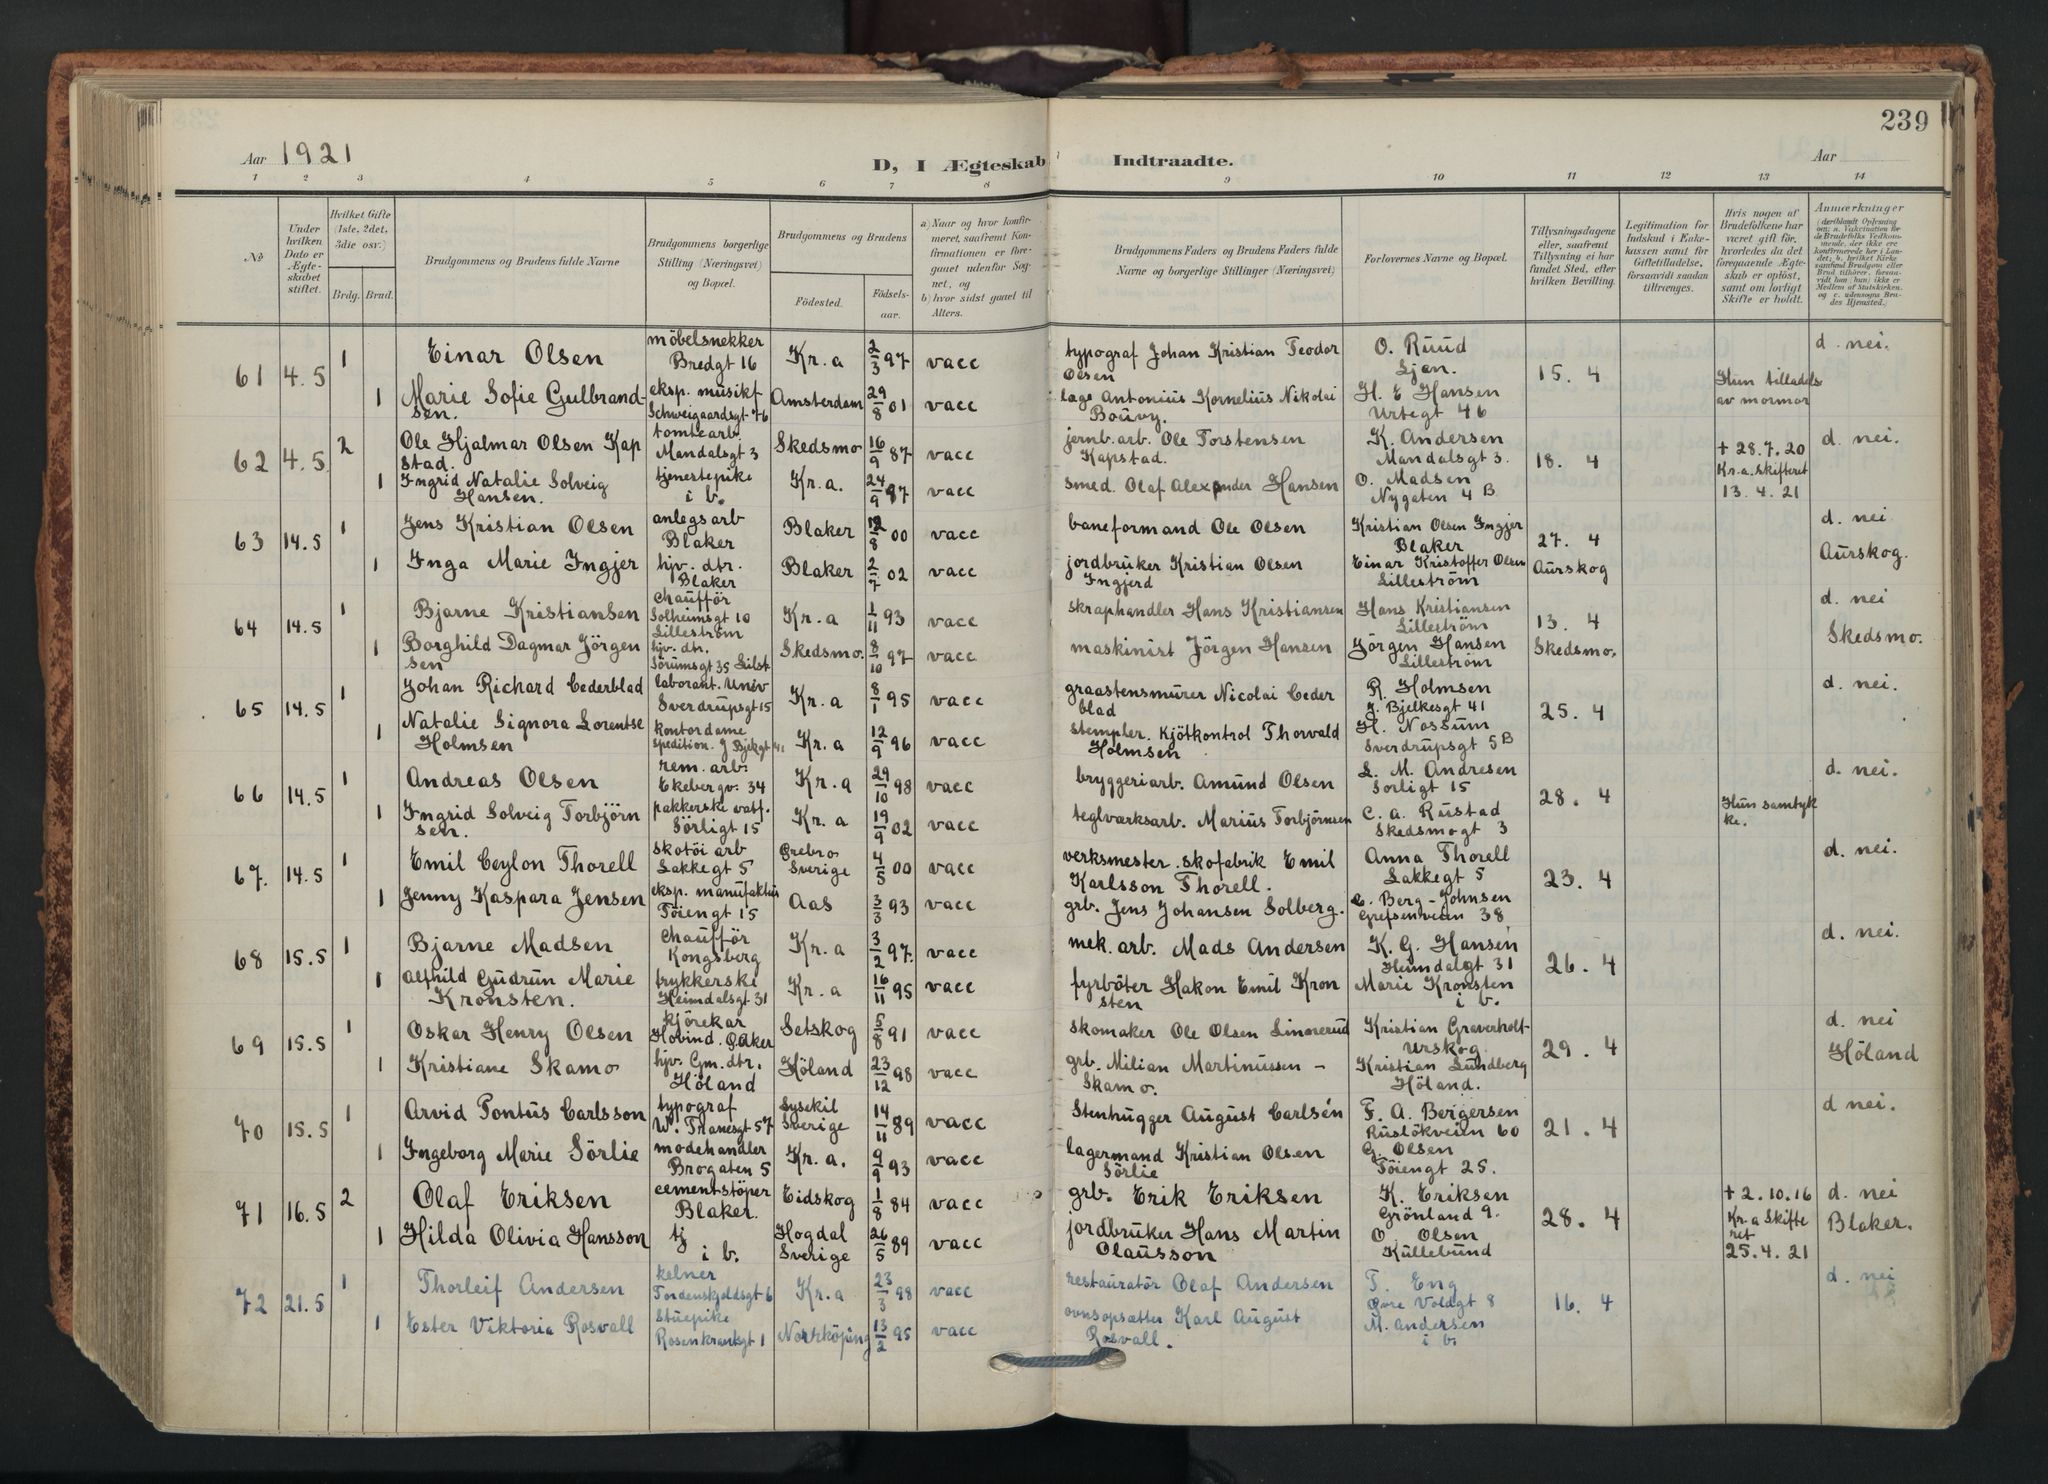 239
Aar 1921
D, I Ægteskab Indtraadte.
Aar
1 2 3 4 5 6 7 8 9 10 11 12 13 14
№
Under hvilken Dato er Ægteskabet stiftet.
Hvilket Gifte (1ste, 2det, 3die osv.)
Brdg. Brud.
Brudgommens og Brudens fulde Navne
Brudgommens borgerlige Stilling (Næringsvei) og Bopæl.
Brudgommens og Brudens
Fødested.
Fødselsaar.
a) Naar og hvor konfirmeret, saafremt Konfirmationen er foregaaet udenfor Sognet, og
b) hvor sidst gaaet til Alters.
Brudgommens Faders og Brudens Faders fulde Navne og borgerlige Stillinger (Næringsvei)
Forlovernes Navne og Bopæl.
Tillysningsdagene eller, saafremt Tillysning ei har fundet Sted, efter hvilken Bevilling.
Legitimation for Indskud i Enkekassen samt for Giftetilladelse, forsaavidt saadan tiltrænges.
Hvis nogen af Brudefolkene har været gift før, hvorledes da det foregaaende Ægteskab er opløst, samt om lovligt Skifte er holdt.
Anmærkninger
61 4.5 1 Einar Olsen møbelsnekker Bredgt 16 Kr.a 2/3 97 vacc typograf Johan Kristian Teodor Olsen O. Ruud Ljan. 15. 4 d. nei.
1 Marie Sofie Gulbrandsen. eksp. musikf Schweigaardsgt 76 Amsterdam 29/8 01 vacc Antonius Kornelius Nikolai Bouvy. H. E Hansen Urtegt 46 Hun tilladels av mormor
62 4.5 2 Ole Hjalmar Olsen Kapstad. tomtearb. Mandalsgt 3 Skedsmo 16/9 87 vacc jernb. arb. Ole Torstensen Kapstad. K. Andersen Mandalsgt 3. 18. 4 + 28.7.20 Kr.a. Skifteret 13.4.21 d. nei.
1 Ingrid Natalie Solveig Hansen. tjenestepike i b. Kr.a. 24/9 97 vacc smed. Olaf Alexander Hansen O. Madsen Nygaten 4 B
63 14.5 1 Jens Kristian Olsen anlegsarb Blaker Blaker 12/8 00 vacc baneformand Ole Olsen Kristian Olsen Ingjer Blaker 27. 4 Aurskog d. nei Aurskog.
1 Inga Marie Ingjer hjv. dtr. Blaker Blaker 2/7 02 vacc jordbruker Kristian Olsen Ingjerd Einar Kristoffer Olsen Lilleström
64 14.5 1 Bjarne Kristiansen Chaufför Solheimsgt 10 Lilleström Kr.a 1/11 93 vacc skraphandler Hans Kristiansen Hans Kristiansen Lilleström 13. 4 Skedsmo. d. nei Skedsmo.
1 Borghild Dagmar Jörgensen hjv. dtr. Sörumsgt 35 Lilst Skedsmo. 8/10 97 vacc maskinist Jörgen Hansen Jörgen Hansen Lilleström
65 14.5 1 Johan Richard Cederblad laborant. Univ Sverdrupsgt 15 Kr.a 8/1 95 vacc graastensmurer Nicolai Cederblad R. Holmsen J. Bjelkesgt 41 25. 4 d. nei.
1 Natalie Signora Lorentse Holmsen kontordame spedition. J Bjelkgt 41 Kr.a 12/9 96 vacc stempler. Kjötkontrol Thorvald Holmsen H. Nossum Sverdrupsgt 5B
66 14.5 1 Andreas Olsen rem. arb. Ekebergv. 34 Kr.a 29/10 98 vacc bryggeriarb. Amund Olsen L. M. Andresen Sörligt 15 28. 4 d. nei.
1 Ingrid Solveig Torbjörnsen. pakkerske vatf. Sörligt 15 Kr.a 19/9 02 vacc teglværksarb. Marius Torbjörnsen C. A. Rustad Skedsmogt 3 Hun samtykke.
67. 14.5 1 Emil Ceylon Thorell skotöi arb Lakkegt 5 Örebro Sverige 4/5 00 vacc verksmester. skofabrik Emil Karlsson Thorell. Anna Thorell Lakkegt 5 23. 4 d. nei.
1 Jenny Kaspara Jensen eksp. manufaktur Töiengt 15 Aas 3/3 93 vacc grb. Jens Johansen Solberg. C. Berg-Johnsen Grefsenveien 38
68 15.5 1 Bjarne Madsen Chaufför Kongsberg Kr.a 3/2 97. vacc mek. arb. Mads Andersen K. G. Hansen Heimdalsgt 31 26. 4 d. nei.
1 Alfhild Gudrun Marie Kronsten. trykkerske Heimdalsgt 31 Kr.a 16/11 95 vacc fyrböter Hakon Emil Kronsten Marie Kronsten i b.
69 15.5 1 Oskar Henry Olsen kjörekar Hovind. Ö.Aker Setskog 5/8 91 vacc skomaker Ole Olsen Linnerud Kristian Graverholt Urskog. 29. 4 d. nei Höland
1 Kristiane Skamo hjv. Gm. dtr. Höland Höland 23/12 98 vacc grb. Milian Martinussen - Skamo. Kristian Lundberg Höland.
70 15.5 1 Arvid Pontus Carlsson typograf W. Tranesgt 57 Lysekil Sverige 14/11 89 vacc Stenhugger August Carlsén F. A. Bergersen Ruslökveien 60 21. 4 d nei.
1 Ingeborg Marie Sörlie modehandler Brogaten 5 Kr.a. 9/9 93 vacc lagermand Kristian Olsen Sörlie G. Olsen Töiengt 25.
71 16.5 2 Olaf Eriksen cementstöper Blaker. Eidskog 1/8 84 vacc grb. Erik Eriksen K. Eriksen Grönland 9. 28. 4 + 2.10.16 Kr.a Skifteret 25.4.21 d. nei Blaker.
1 Hilda Olivia Hansson tj i b. Hogdal Sverige 26/5 89 vacc jordbruker Hans Martin Olausson O. Olsen Kullebund
72 21.5 1 Thorleif Andersen kelner Tordenskjoldsgt 6 Kr.a 23/3 98 vacc restauratör Olaf Andersen T. Eng Övre Voldgt 8 16. 4 d. nei
1 Ester Viktoria Rosvall Stuepike Rosenkrantsgt 1 Norrköping 13/2 95 vacc ovnsopsætter Karl August Rosvall. M. Andersen i b.